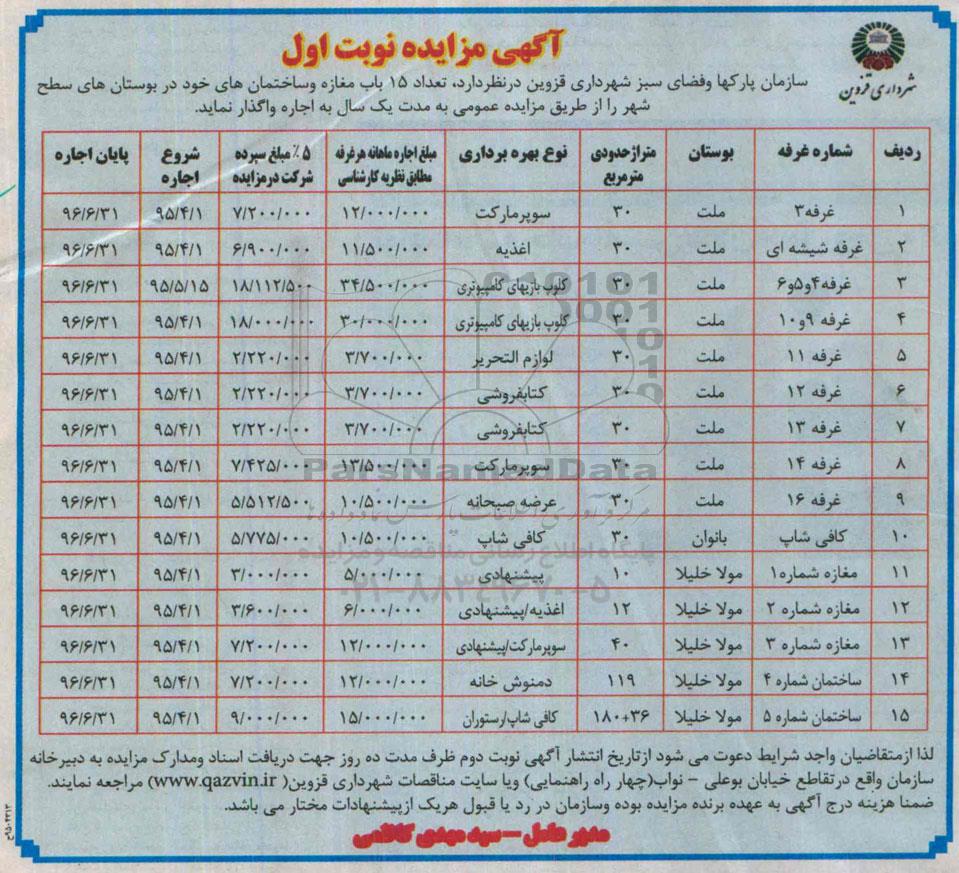 آگهی مزایده نوبت اول
شهرداری قزوین
سازمان پارکها وفضای سبز شهرداری قزوین درنظردارد، تعداد ۱۵ باب مغازه وساختمان های خود در بوستان های سطح
شهر را از طریق مزایده عمومی به مدت یک سال به اجاره واگذار نماید.
ردیف شماره غرفه بوستان متراژحدودی مترمربع نوع بهره برداری مبلغ اجاره ماهانه هرغرفه مطابق نظریه کارشناسی ۵٪ مبلغ سپرده شرکت درمزایده شروع اجاره پایان اجاره
۱ غرفه۳ ملت ۳۰ سوپرمارکت ۱۲/۰۰۰/۰۰۰ ۷/۲۰۰/۰۰۰ ۹۵/۴/۱ ۹۶/۶/۳۱
۲ غرفه شیشه ای ملت ۳۰ اغذیه ۱۱/۵۰۰/۰۰۰ ۶/۹۰۰/۰۰۰ ۹۵/۴/۱ ۹۶/۶/۳۱
۳ غرفه۴و۵و۶ ملت ۳۰ کلوپ بازیهای کامپیوتری ۳۴/۵۰۰/۰۰۰ ۱۸/۱۱۲/۵۰۰ ۹۵/۵/۱۵ ۹۶/۶/۳۱
۴ غرفه ۹و۱۰ ملت ۳۰ کلوپ بازیهای کامپیوتری ۳۰/۰۰۰/۰۰۰ ۱۸/۰۰۰/۰۰۰ ۹۵/۴/۱ ۹۶/۶/۳۱
۵ غرفه ۱۱ ملت ۳۰ لوازم التحریر ۳/۷۰۰/۰۰۰ ۲/۲۲۰/۰۰۰ ۹۵/۴/۱ ۹۶/۶/۳۱
۶ غرفه ۱۲ ملت ۳۰ کتابفروشی ۳/۷۰۰/۰۰۰ ۲/۲۲۰/۰۰۰ ۹۵/۴/۱ ۹۶/۶/۳۱
۷ غرفه ۱۳ ملت ۳۰ کتابفروشی ۳/۷۰۰/۰۰۰ ۲/۲۲۰/۰۰۰ ۹۵/۴/۱ ۹۶/۶/۳۱
۸ غرفه ۱۴ ملت ۳۰ سوپرمارکت ۱۳/۵۰۰/۰۰۰ ۷/۴۲۵/۰۰۰ ۹۵/۴/۱ ۹۶/۶/۳۱
۹ غرفه ۱۶ ملت ۳۰ عرضه صبحانه ۱۰/۵۰۰/۰۰۰ ۵/۵۱۲/۵۰۰ ۹۵/۴/۱ ۹۶/۶/۳۱
۱۰ کافی شاپ بانوان ۳۰ کافی شاپ ۱۰/۵۰۰/۰۰۰ ۵/۷۷۵/۰۰۰ ۹۵/۴/۱ ۹۶/۶/۳۱
۱۱ مغازه شماره۱ مولا خلیلا ۱۰ پیشنهادی ۵/۰۰۰/۰۰۰ ۳/۰۰۰/۰۰۰ ۹۵/۴/۱ ۹۶/۶/۳۱
۱۲ مغازه شماره ۲ مولا خلیلا ۱۲ اغذیه/پیشنهادی ۶/۰۰۰/۰۰۰ ۳/۶۰۰/۰۰۰ ۹۵/۴/۱ ۹۶/۶/۳۱
۱۳ مغازه شماره ۳ مولا خلیلا ۴۰ سوپرمارکت/پیشنهادی ۱۲/۰۰۰/۰۰۰ ۷/۲۰۰/۰۰۰ ۹۵/۴/۱ ۹۶/۶/۳۱
۱۴ ساختمان شماره ۴ مولا خلیلا ۱۱۹ دمنوش خانه ۱۲/۰۰۰/۰۰۰ ۷/۲۰۰/۰۰۰ ۹۵/۴/۱ ۹۶/۶/۳۱
۱۵ ساختمان شماره ۵ مولا خلیلا ۱۸۰+۳۶ کافی شاپ/رستوران ۱۵/۰۰۰/۰۰۰ ۹/۰۰۰/۰۰۰ ۹۵/۴/۱ ۹۶/۶/۳۱
ParsNamadData
پایگاه اطلاع رسانی مناقصه و مزایده
۰۲۱-۸۸۳۴۹۶۷۰-۵
لذا ازمتقاضیان واجد شرایط دعوت می شود ازتاریخ انتشار آگهی نوبت دوم ظرف مدت ده روز جهت دریافت اسناد ومدارک مزایده به دبیرخانه
سازمان واقع درتقاطع خیابان بوعلی - نواب(چهار راه راهنمایی) ویا سایت مناقصات شهرداری قزوین( www.qazvin.ir) مراجعه نمایند.
ضمنا هزینه درج آگهی به عهده برنده مزایده بوده وسازمان در رد یا قبول هریک ازپیشنهادات مختار می باشد.
مدیر عامل – سید مهدی کاظمی